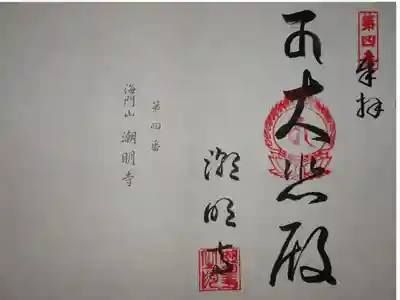 第四番
奉拝
大悲殿
潮明寺
第四番
海門山 潮明寺